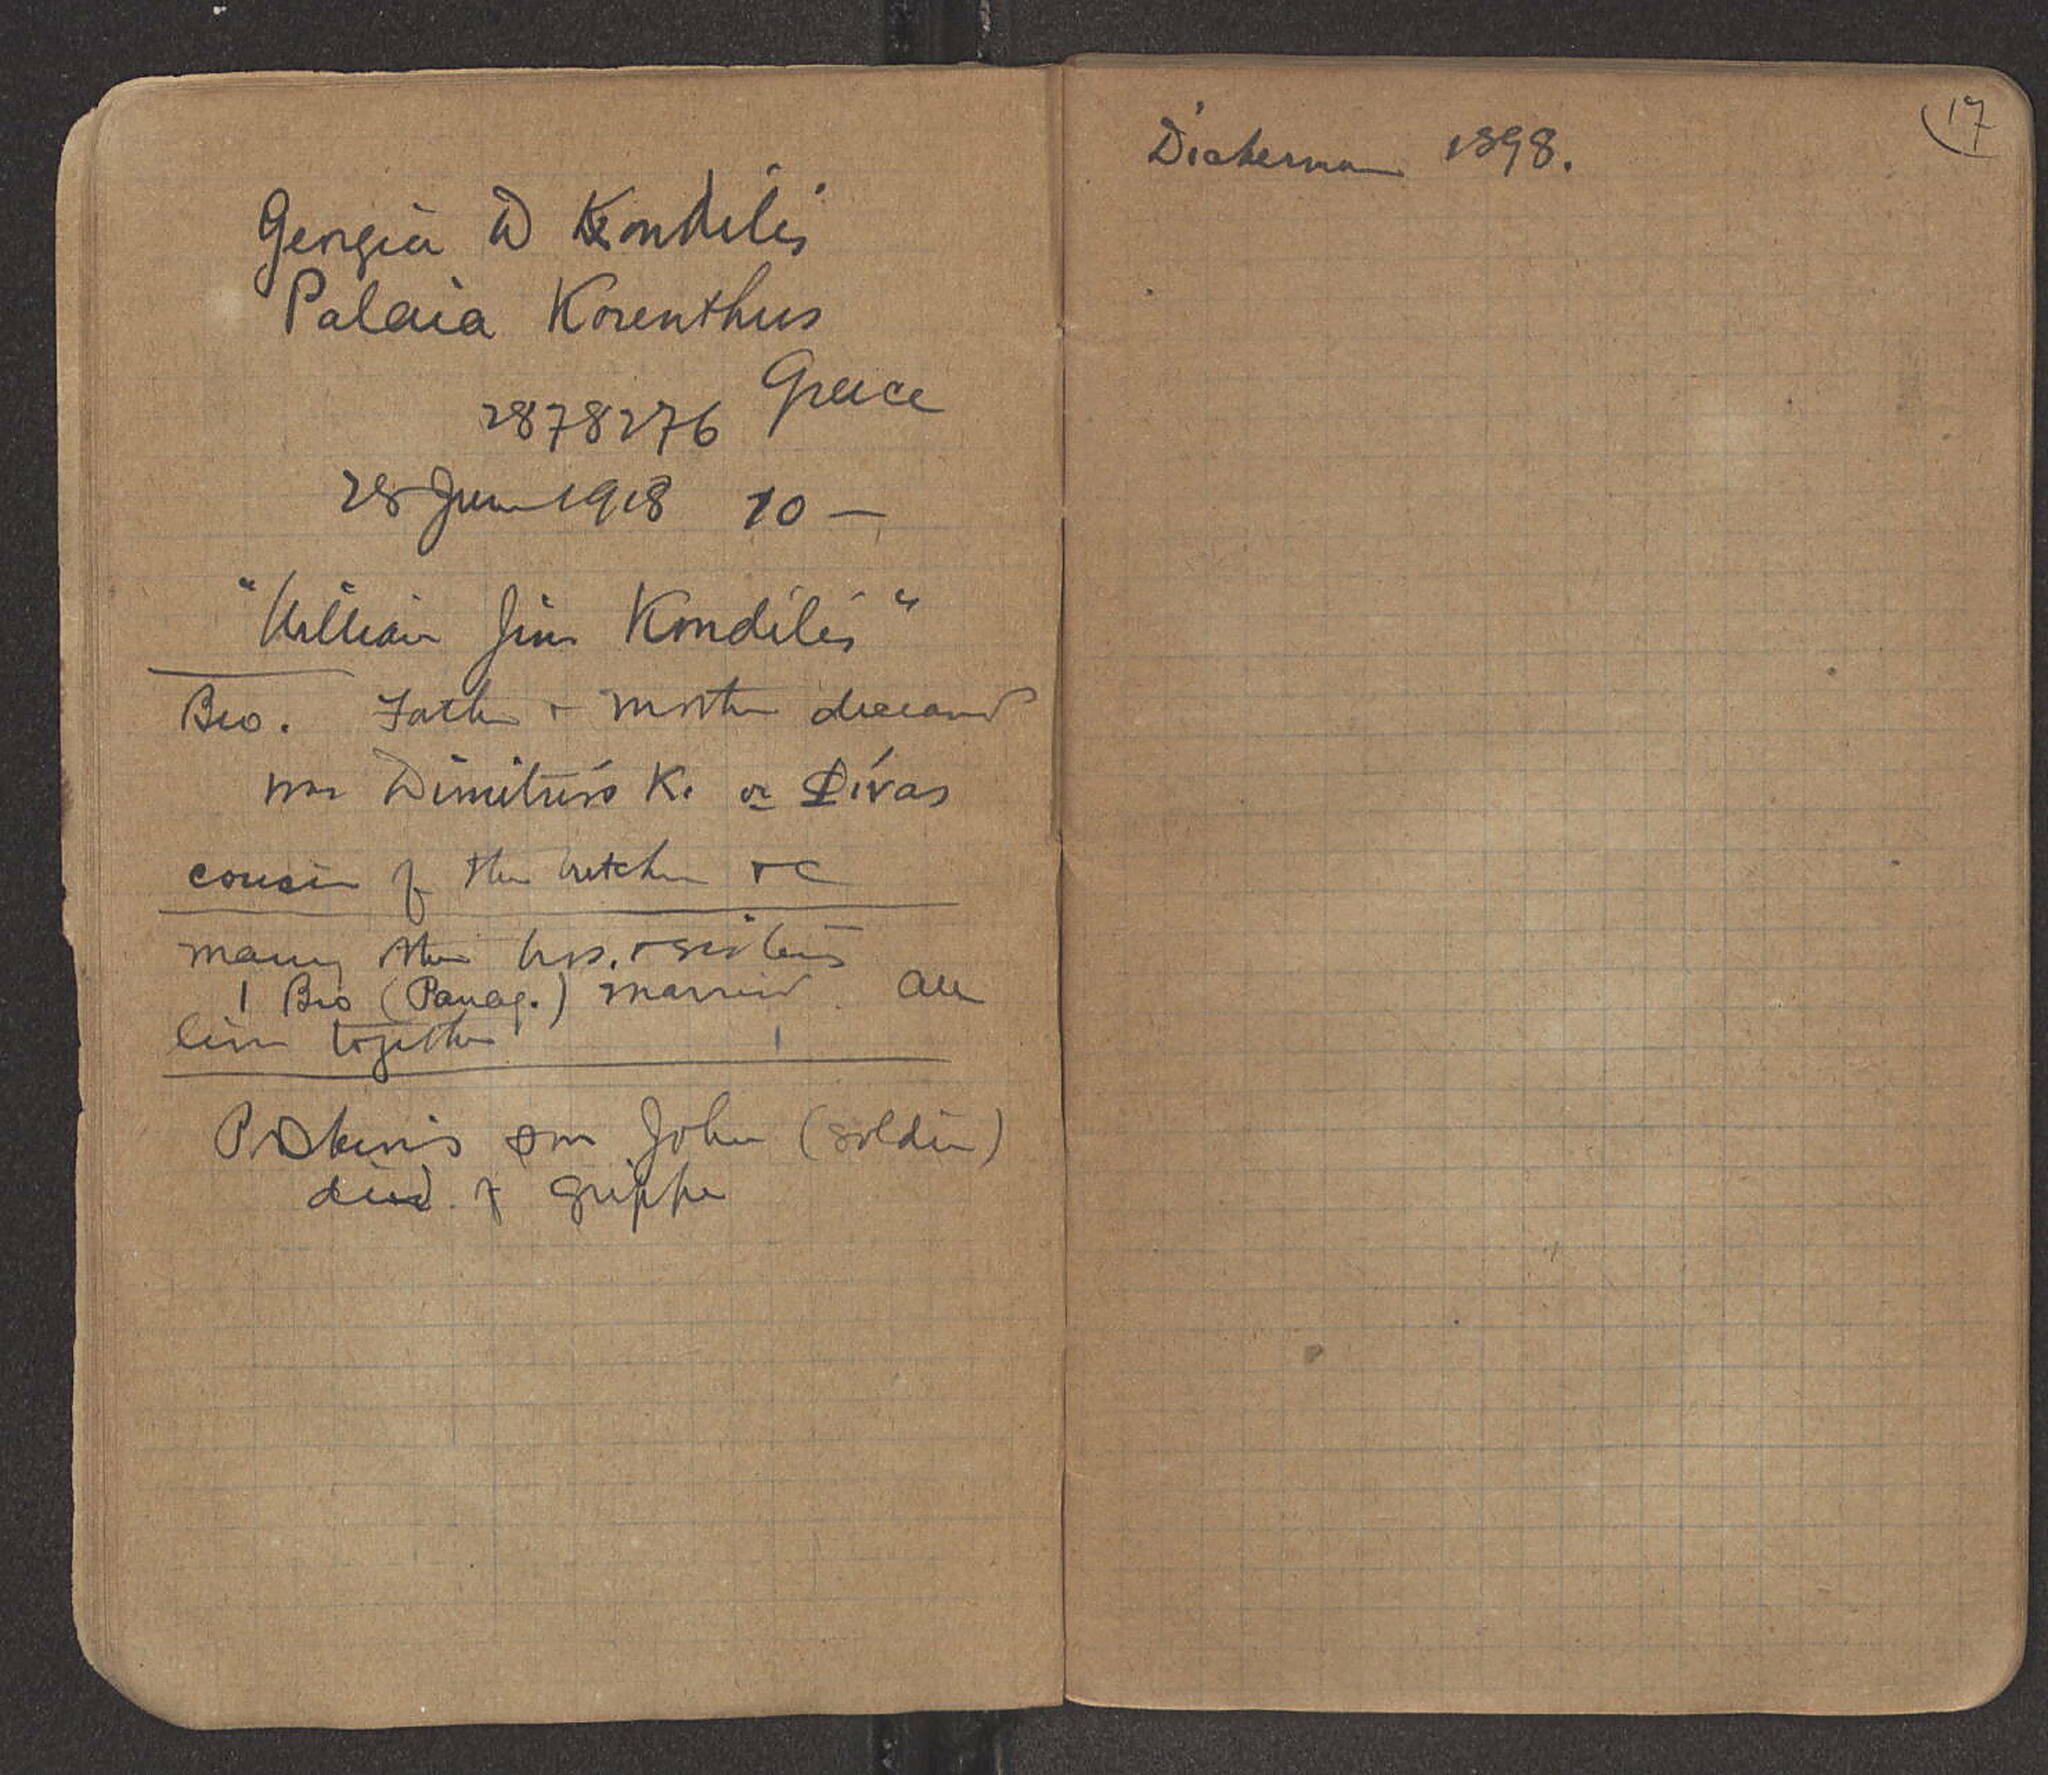 Georgia D Kondilis
Palaia Korenthus
Greece
2878276
28 June 1918 10 —
"William Jim Kondilis"
Bro. Father + mother deceased
was Dimitrios K. or Divas
cousin of the butcher &c
many three bros. + sisters
1 Bro (Panag.) married. All
live together
P. Skinis son John (soldier)
died of grippe
Dickerman 1898.
17